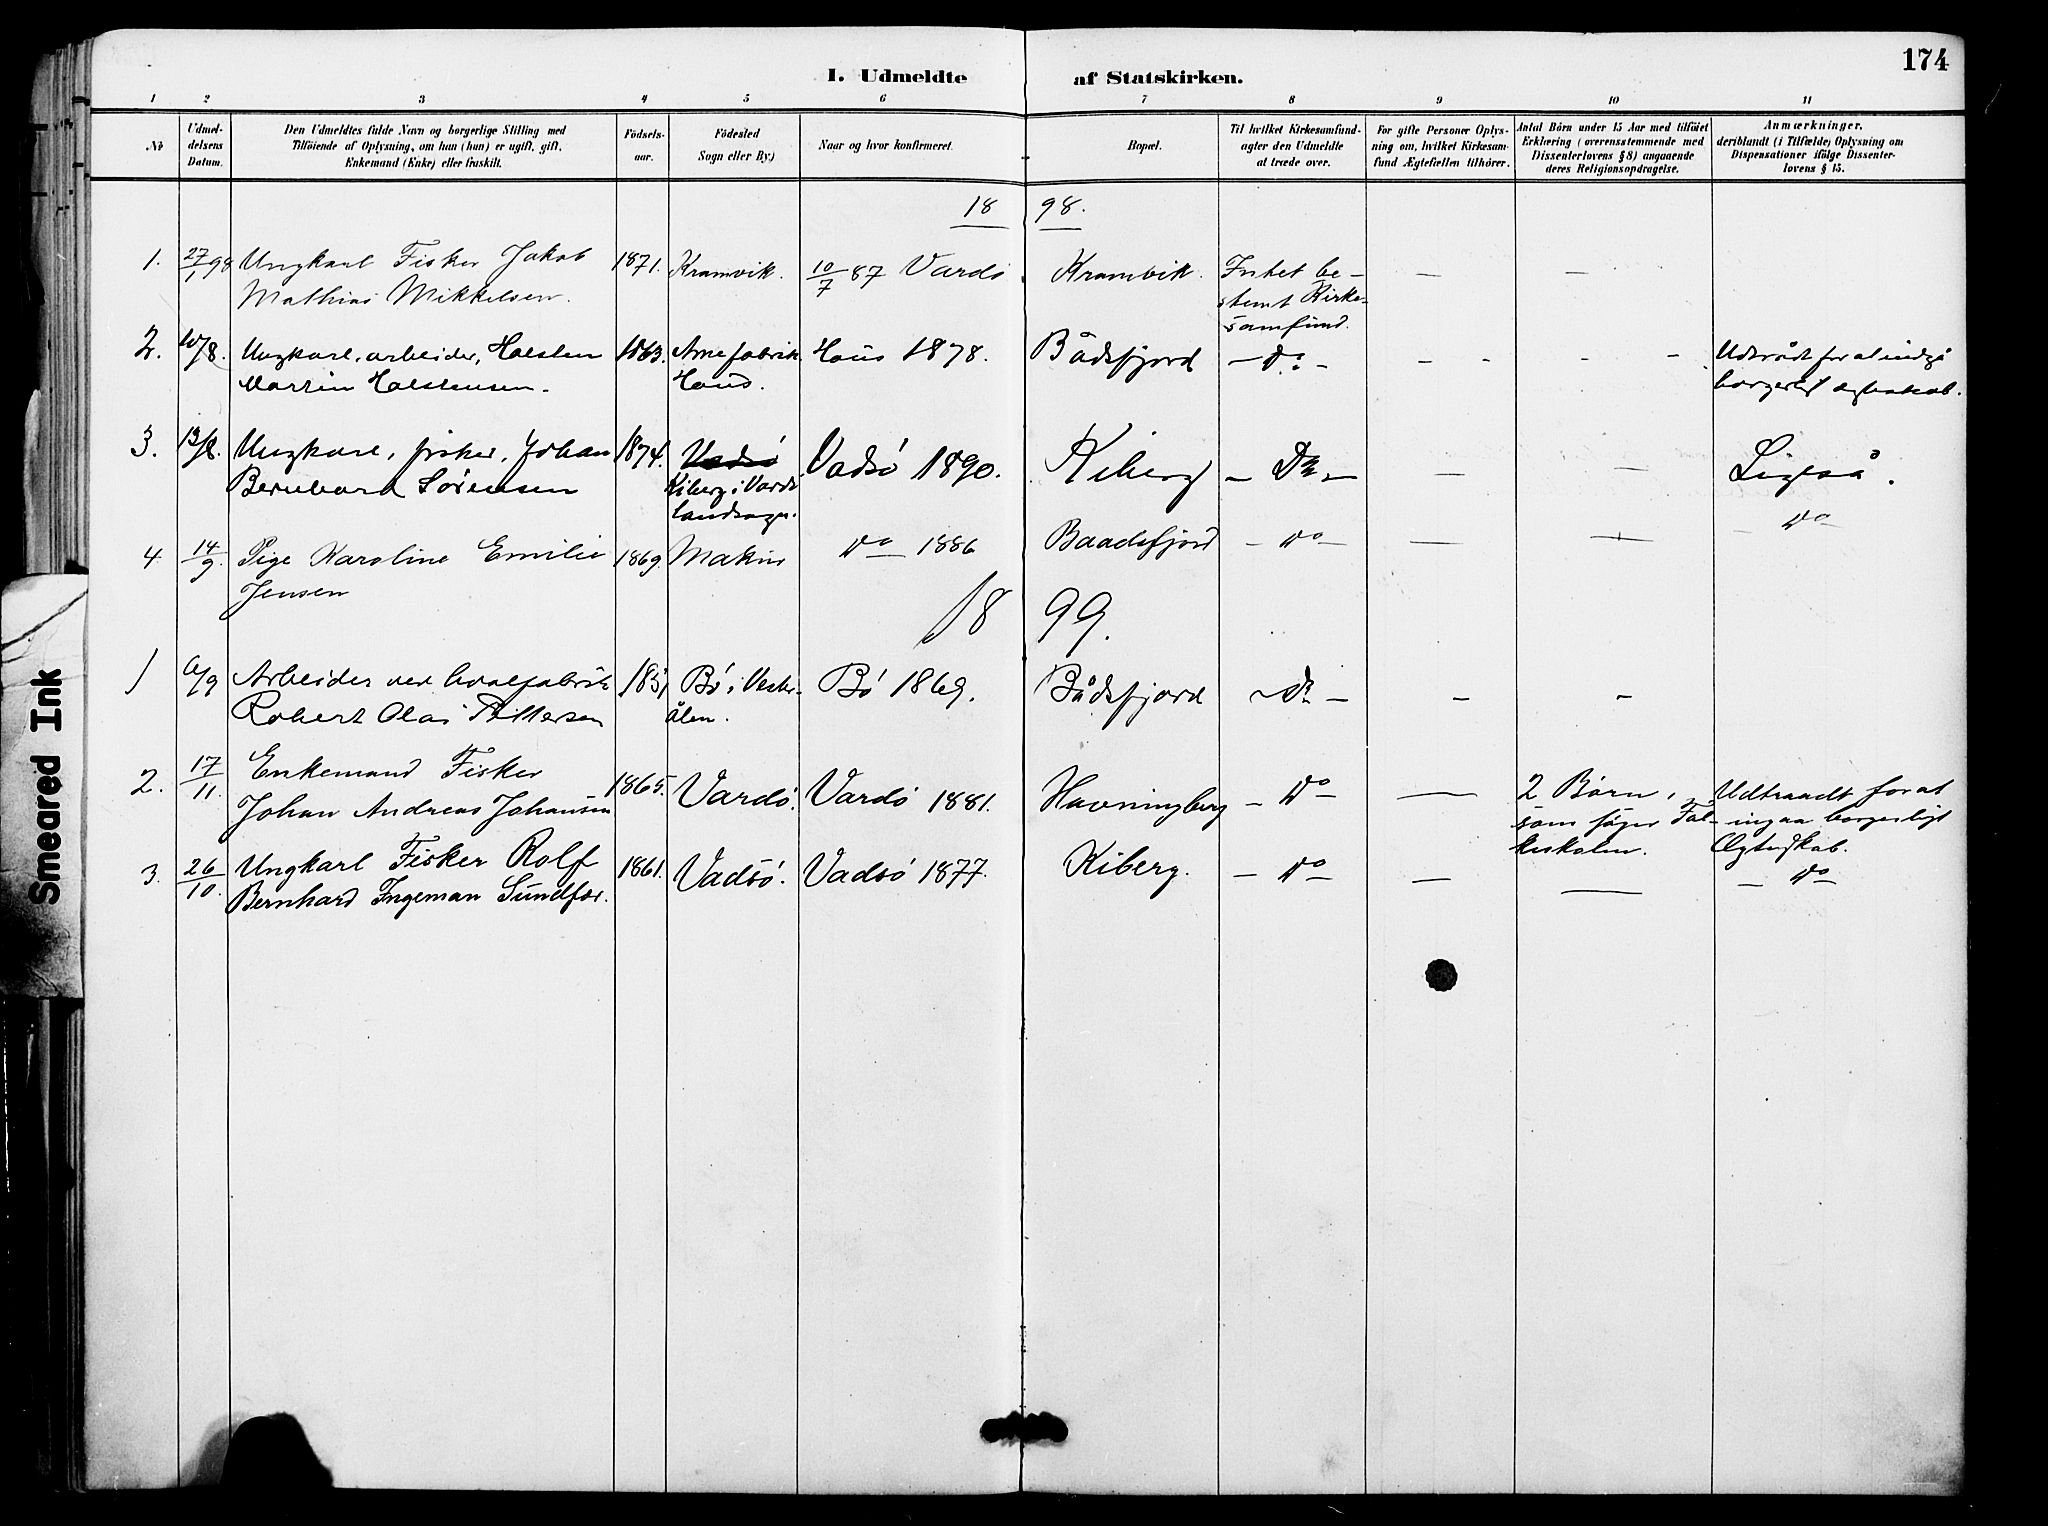 174
I. Udmeldte af Statskirken.
1 2 3 4 5 6 7 8 9 10 11
No
Udmel-
delsens
Datum.
Den Udmeldtes fulde Navn og borgerlige Stilling med
Tilföiende af Oplysning, om han (hun) er ugift, gift,
Enkemand (Enke) eller fraskilt.
Födsels-
aar.
Födested
Sogn eller By.)
Naar og hvor konfirmeret.
Bopæl.
Til hvilket Kirkesamfund-
agter den Udmeldte
at træde over.
For gifte Personer Oplys-
ning om, hvilket Kirkesam-
fund Ægtefællen tilhörer.
Antal Börn under 15 Aar med tilföiet
Erklæring (overensstemmende med
Dissenterlovens § 8) angaaende
deres Religionsopdragelse.
Anmærkninger,
deriblandt (i Tilfælde) Oplysning om
Dispensationer ifölge Dissenter-
lovens § 15.
18 98.
1. 27/1 98 Ungkarl Fisker Jakob 1871. Kramvik. 10/7 87 Vardö Kramvik. Intet be- — —
Mathias Mikkelsen. stemt Kirke-
samfund.
2. /8. Ungkarl, arbeider, Halsten 1863. Arne fabrik Haus 1878. Bådsfjord - Do - - - - - Udtrådt for at indgå
Martin Halstensen. Haus. borgerligt ægteskab.
3. 13/8. Ungkarl, fisker, Johan 1874. Vadsö Vadsö 1890. Kiberg - Do - — — Ligeså.
Bernhard Sörensen Kiberg i Vardö
landsogn.
4 14/9 Pige Karoline Emilie 1869. Do 1886 Baadsfjord - Do — — — — Do
Jensen
18 99.
1 6/9 Arbeider ved hvalfabrik 1851 Bö i Vester- Bö 1869. Bådsfjord - Do - — —
Robert Olai Pettersen ålen.
2. 17/11. Enkemand Fisker 1865. Vardö. Vardö 1881. Havningberg - Do — — 2 Börn, Udtraadt for at
Johan Andreas Johansen som söger Fol- ingaa borgerligt
keskolen. Ægteskab.
3. 26/10. Ungkarl Fisker Rolf 1861. Vadsö. Vadsö 1877. Kiberg. - Do — — — — Do
Bernhard Ingeman Sundfær.
Smeared Ink